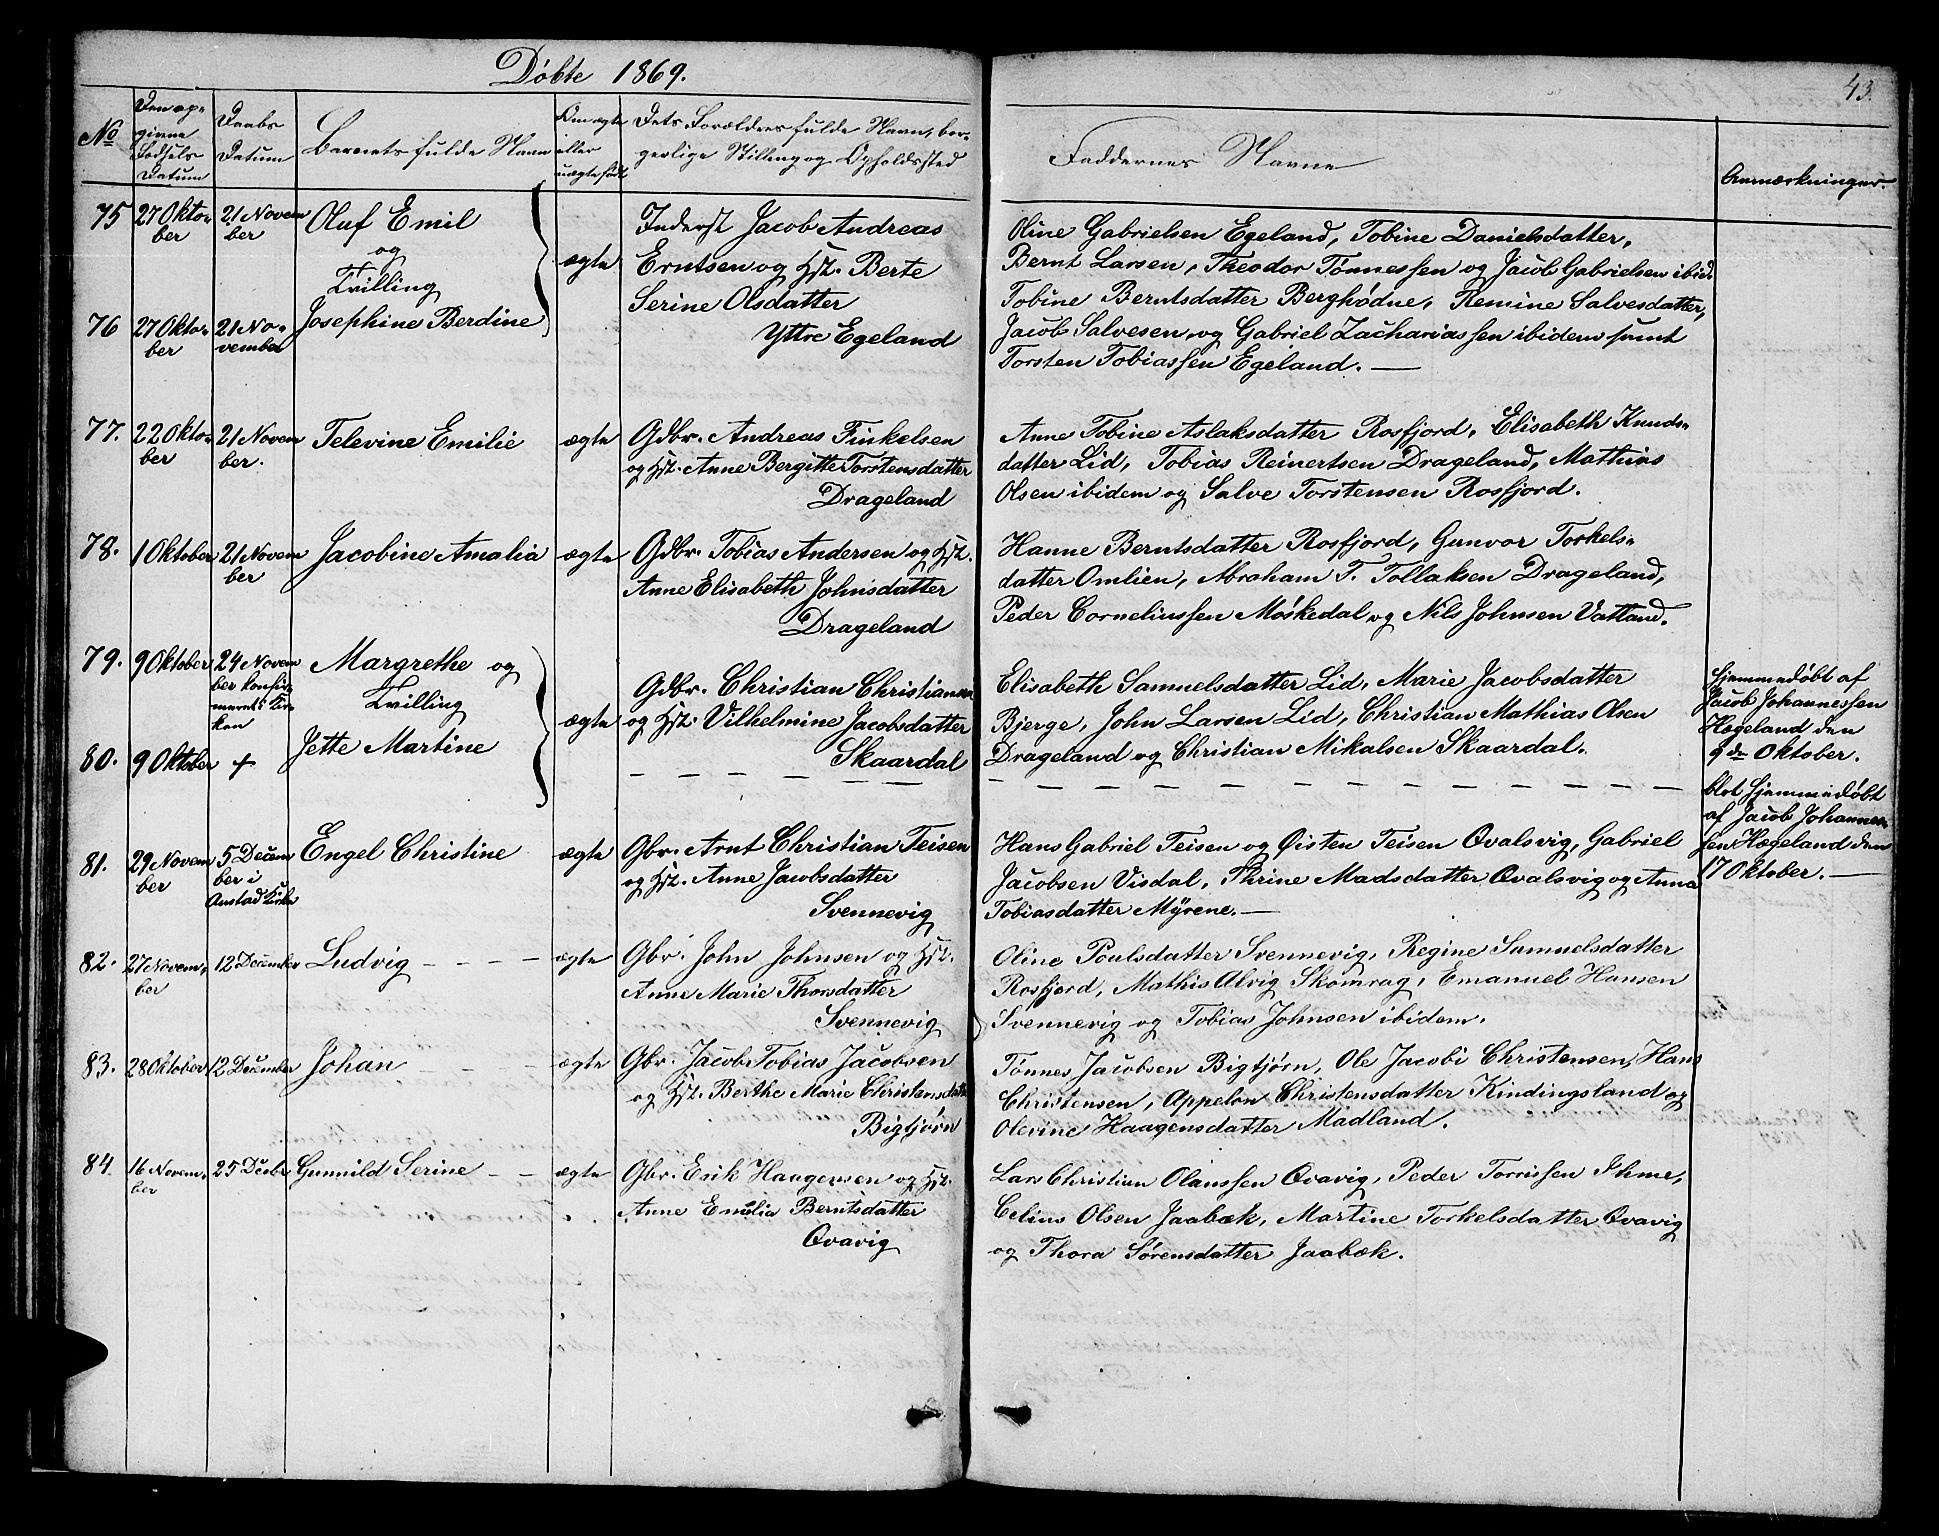 Döbte 1869.
43.
No
Den op-
givne
Fødsels
Datum
Daabs
Datum
Barnets fulde Navn
Om ægte
eller
uægte født
Dets Forældres fulde Navn, bor-
gerlige Stilling og Opholdssted
Faddernes Navne
Anmærkninger.
75 27 Okto-
ber
21 Novem
ber
Oluf Emil
og
Tvilling
76 27 Okto-
ber
21 No-
vember
Josephine Berdine
ægte
Inderst Jacob Andreas
Erntsen og Hst. Berte
Serine Olsdatter
Yttre Egeland
Oline Gabrielsen Egeland, Tobine Danielsdatter,
Bernt Larsen, Theodor Tønnessen og Jacob Gabrielsen ibid.
Tobine Berntsdatter Berghødne, Remine Salvesdatter,
Jacob Salvesen og Gabriel Zachariassen ibidem samt
Torsten Tobiassen Egeland.
77. 22 Okto-
ber
21 Novem
ber.
Televine Emilie
ægte
Gdbr. Andreas Tinkelsen
og Hst. Anne Bergitte Torstensdatter
Drageland
Anne Tobine Aslaksdatter Rosfjord, Elisabeth Knuds-
datter Lid, Tobias Reinertsen Drageland, Mathias
Olsen ibidem og Salve Torstensen Rosfjord.
78. 1 Oktober
21 Novem
ber
Jacobine Amalia
ægte
Gdbr. Tobias Andersen og Hst.
Anne Elisabeth Johnsdatter
Drageland
Hanne Berntsdatter Rosfjord, Gunvor Torkels-
datter Omlien, Abraham T. Tollaksen Drageland,
Peder Corneliussen Møskedal og Nils Johnsen Vatland.
79. 9 Oktober
24 Novem
ber konfir
meret i Kir
ken
Margrethe og
Tvilling
80. 9 Oktober +
Jette Martine
ægte
Gdbr. Christian Christiansen
og Hst. Vilhelmine Jacobsdatter
Skaardal
Elisabeth Samuelsdatter Lid, Marie Jacobsdatter
Bjerge, John Larsen Lid, Christian Mathias Olsen
Drageland og Christian Mikalsen Skaardal.
Hjemmedøbt af
Jacob Johannessen
Hægeland den
9de Oktober.
blot Hjemmedøbt
af Jacob Johannes-
sen Hægeland den
17 Oktober.
81. 29 Novem
ber
5 Decem
ber i
Anstad Kirke
Engel Christine
ægte
Gbr. Arnt Christian Teisen
og Hst. Anne Jacobsdatter
Svennevig
Hans Gabriel Teisen og Øisten Teisen Qvalsvig, Gabriel
Jacobsen Visdal, Thrine Madsdatter Qvalsvig og Anna
Tobiasdatter Mÿrene.
82. 27 Novem-
ber
12 December
Ludvig
ægte
Gbr. John Johnsen og Hst.
Anne Marie Thorsdatter
Svennevig
Oline Poulsdatter Svennevig, Regine Samuelsdatter
Rosfjord, Mathis Alvig Skomrag, Emanuel Hansen
Svennevig og Tobias Johnsen ibidem.
83. 28 Oktober
12 December
Johan
ægte
Gbr. Jacob Tobias Jacobsen
og Hst. Berthe Marie Christensdattr
Bigtjørn
Tønnes Jacobsen Bigtjørn, Ole Jacobi Christensen, Hans
Christensen, Appelon Christensdatter Kindingsland og
Olevine Haagensdatter Madland.
84. 16 Novem-
ber
25 Decbr
Gunnild Serine
ægte
Gbr. Erik Haagensen og Hst.
Anne Emilia Berntsdatter
Qvavig
Lars Christian Olaussen Qvavig, Peder Torrissen Ihme,
Celius Olsen Jaabæk, Martine Torkelsdatter Qvavig
og Thora Sørensdatter Jaabæk.